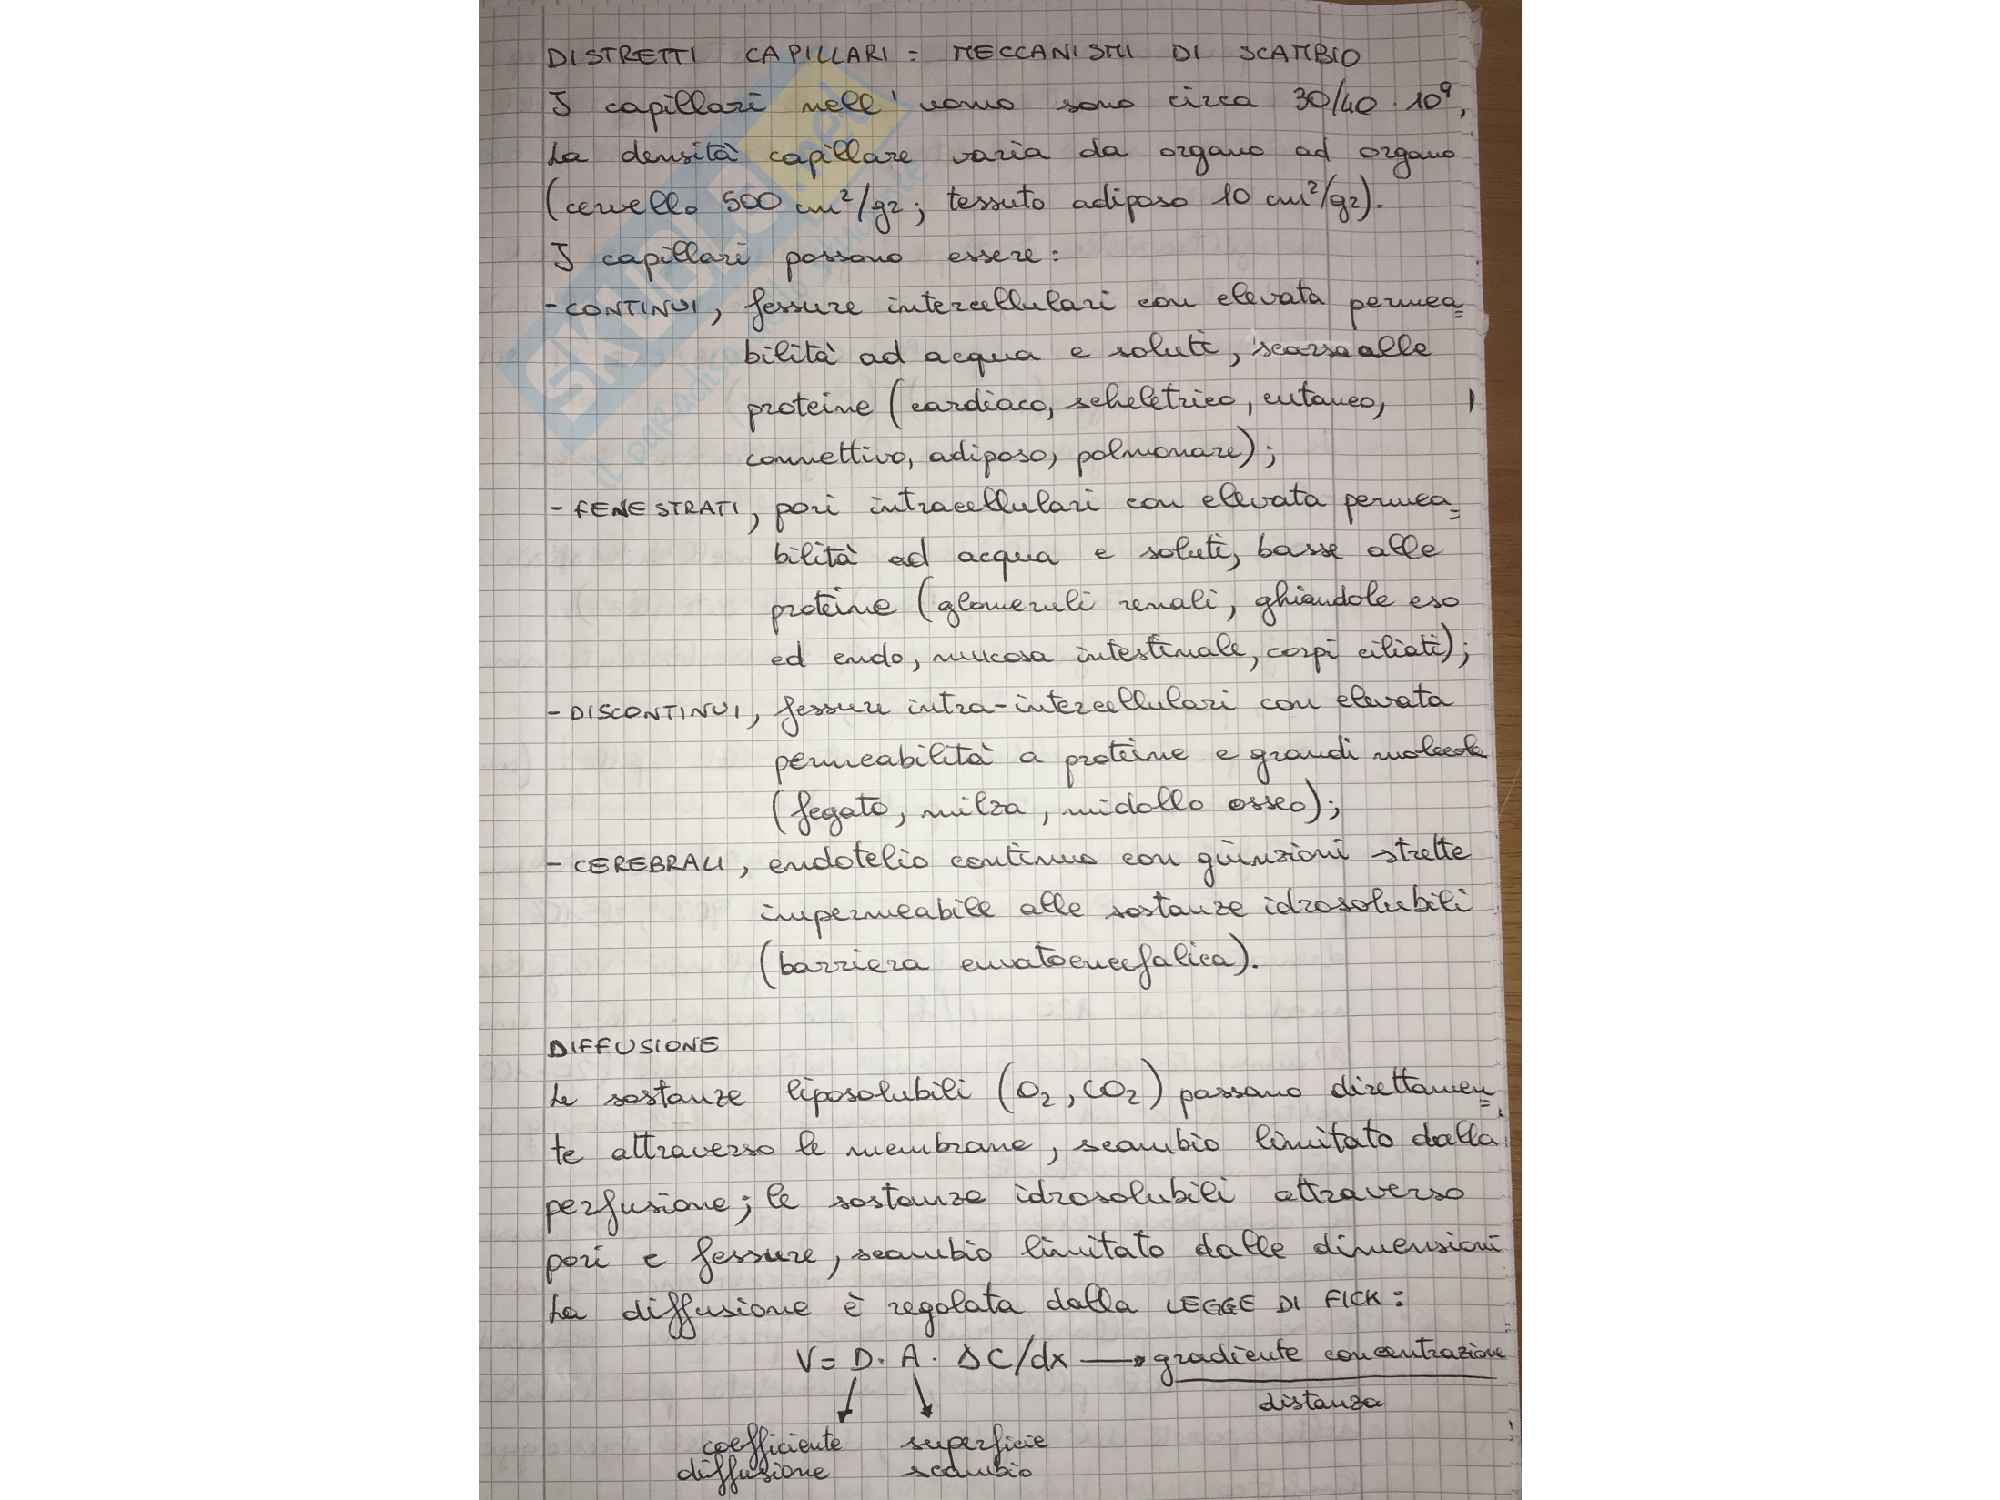 DISTRETTI CAPILLARI: MECCANISMI DI SCAMBIO
I capillari nell'uomo sono circa 30/40 · 10⁹,
La densità capillare varia da organo ad organo
(cervello 500 cm²/gr; tessuto adiposo 10 cm²/gr).
I capillari possono essere:
- CONTINUI, fessure intercellulari con elevata permea=
bilità ad acqua e soluti, scarsa alle
proteine (cardiaco, scheletrico, cutaneo,
connettivo, adiposo, polmonare);
- FENESTRATI, pori intracellulari con elevata permea=
bilità ad acqua e soluti, basse alle
proteine (glomeruli renali, ghiandole eso
ed endo, mucosa intestinale, corpi ciliati);
- DISCONTINUI, fessure intra-intercellulari con elevata
permeabilità a proteine e grandi molecole
(fegato, milza, midollo osseo);
- CEREBRALI, endotelio continuo con giunzioni strette
impermeabile alle sostanze idrosolubili
(barriera ematoencefalica).
DIFFUSIONE
Le sostanze liposolubili (O₂, CO₂) passano direttamen=
te attraverso le membrane, scambio limitato dalla
perfusione; le sostanze idrosolubili attraverso
pori e fessure, scambio limitato dalle dimensioni
La diffusione è regolata dalla LEGGE DI FICK:
V = D · A · ΔC/dx → gradiente concentrazione
distanza
coefficiente superficie
diffusione scambio
SKUOLA.net